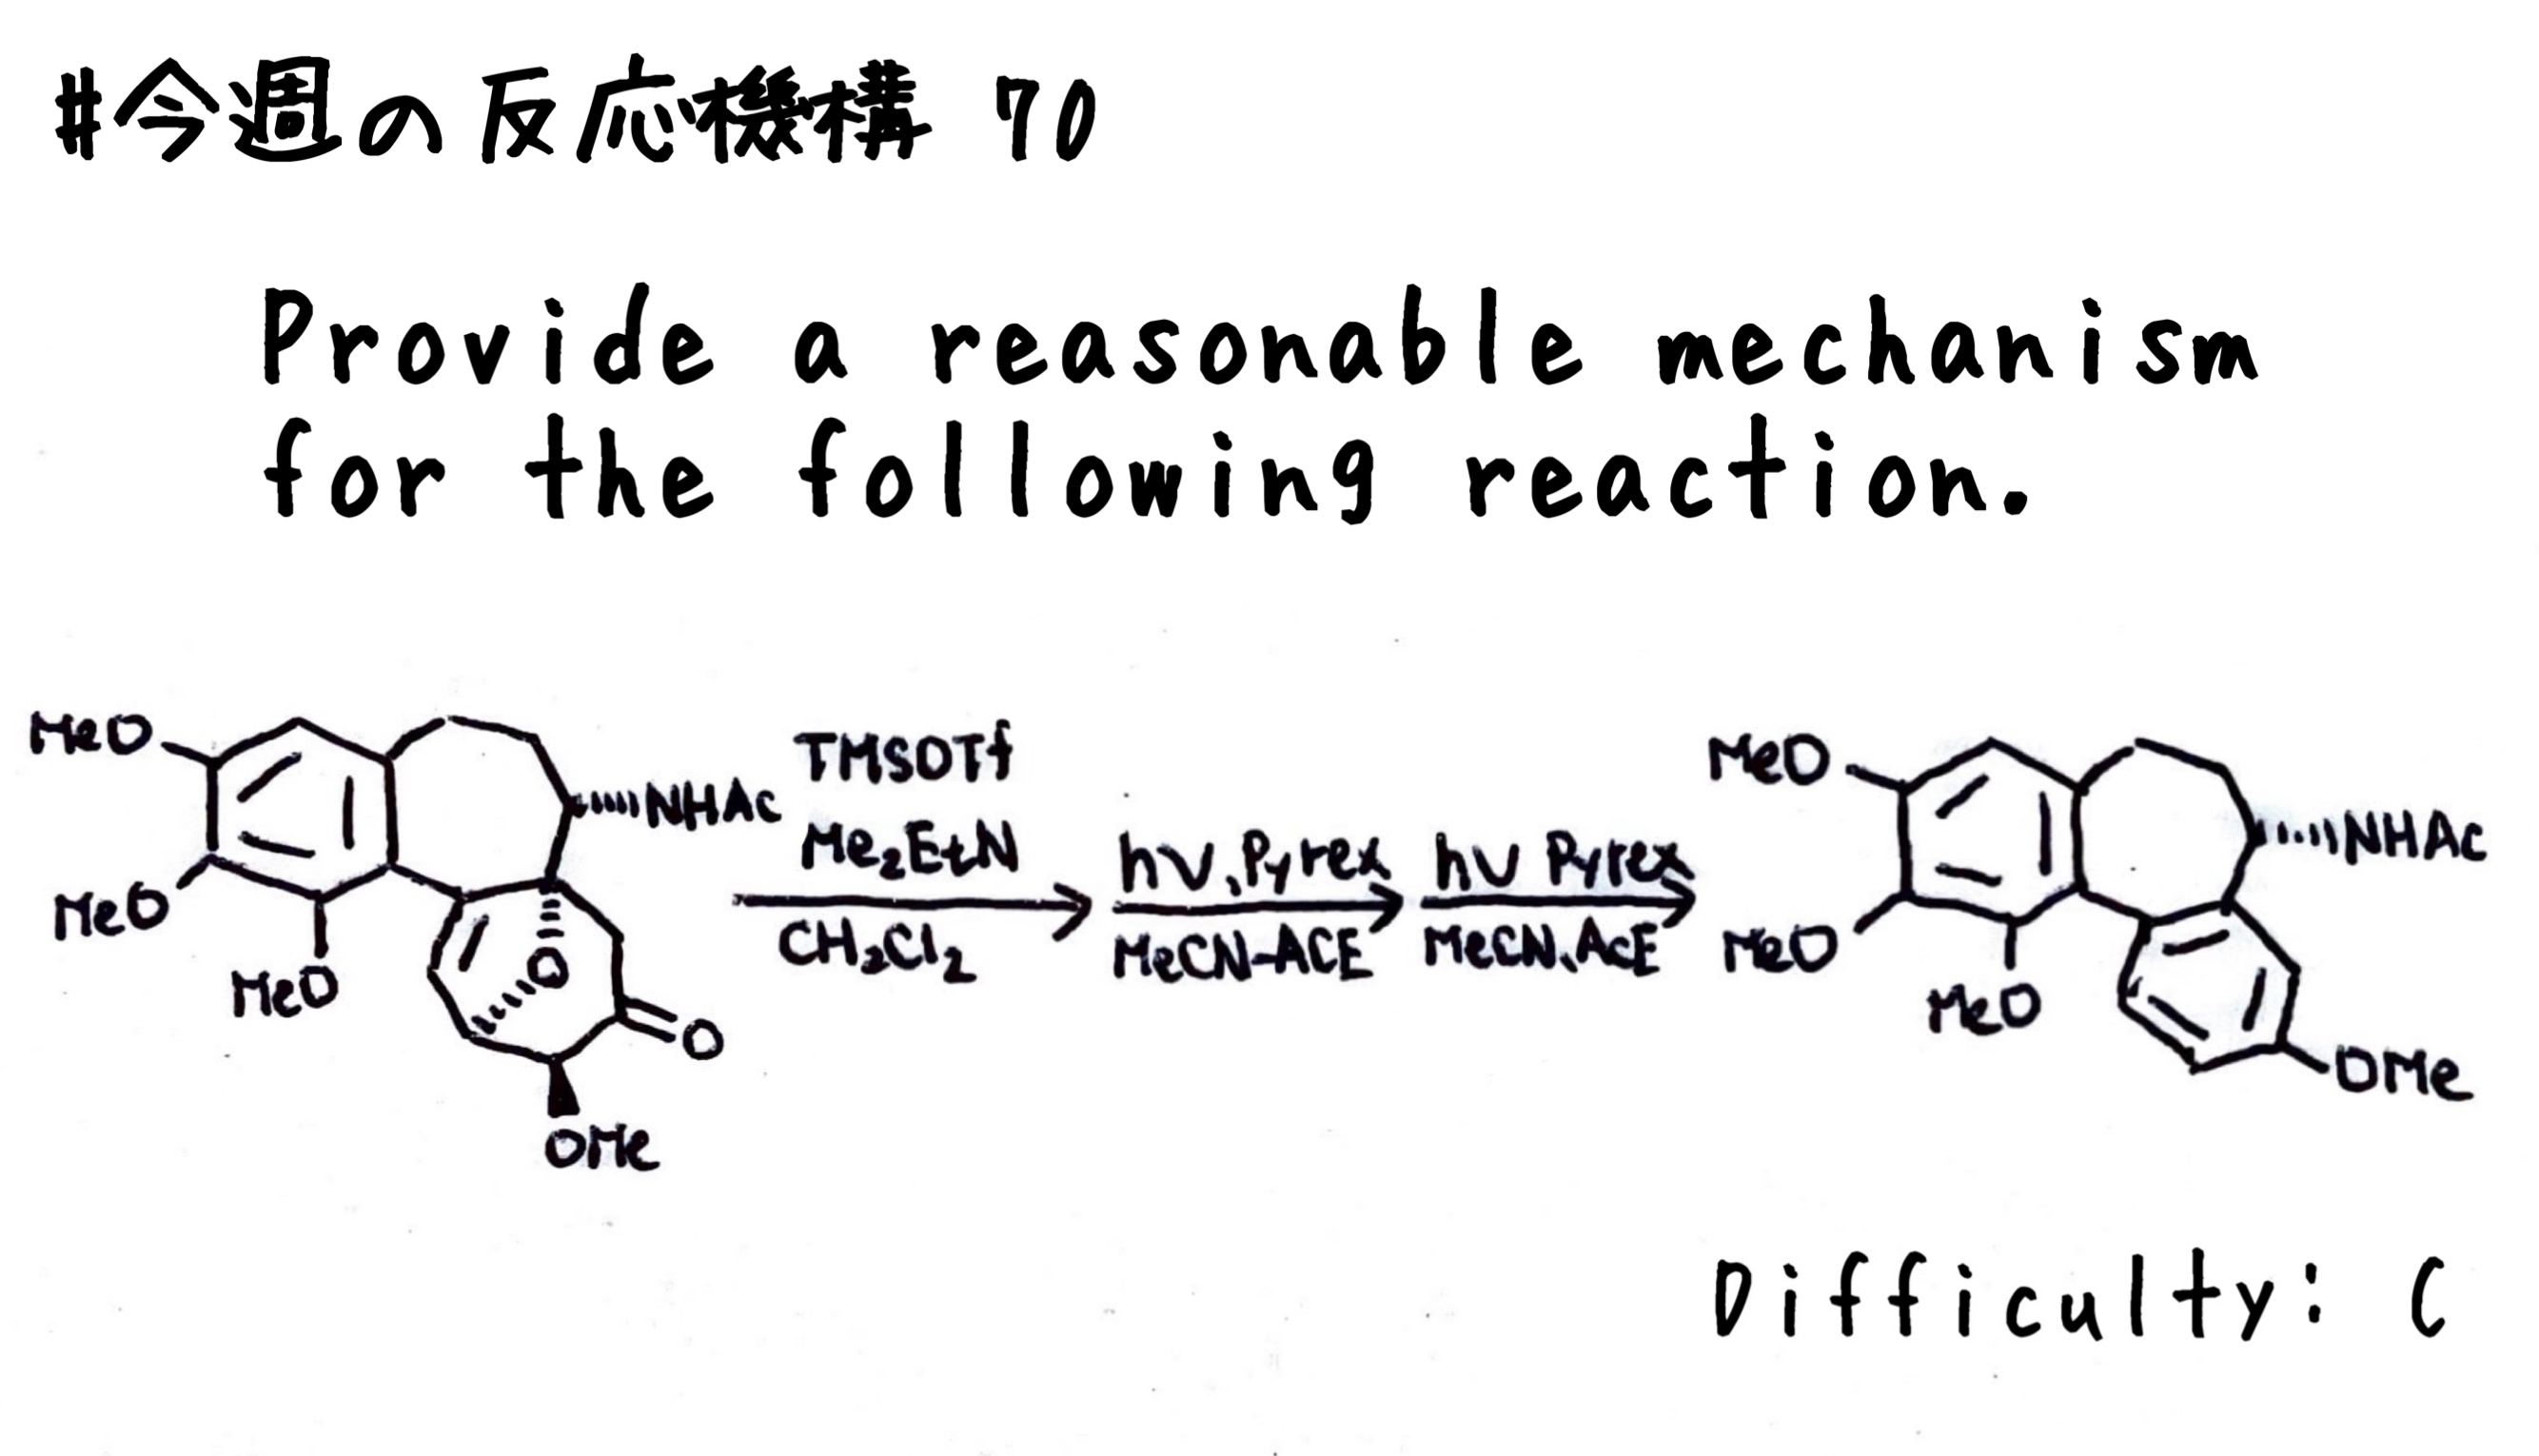 #今週の反応機構 70
Provide a reasonable mechanism
for the following reaction.
MeO
MeO
MeO
NHAc
O
O
OMe
TMSOTf
Me₂EtN
CH₂Cl₂
hν, Pyrex
MeCN-ACE
hν Pyrex
MeCN, AcE
MeO
MeO
MeO
NHAc
OMe
Difficulty: C